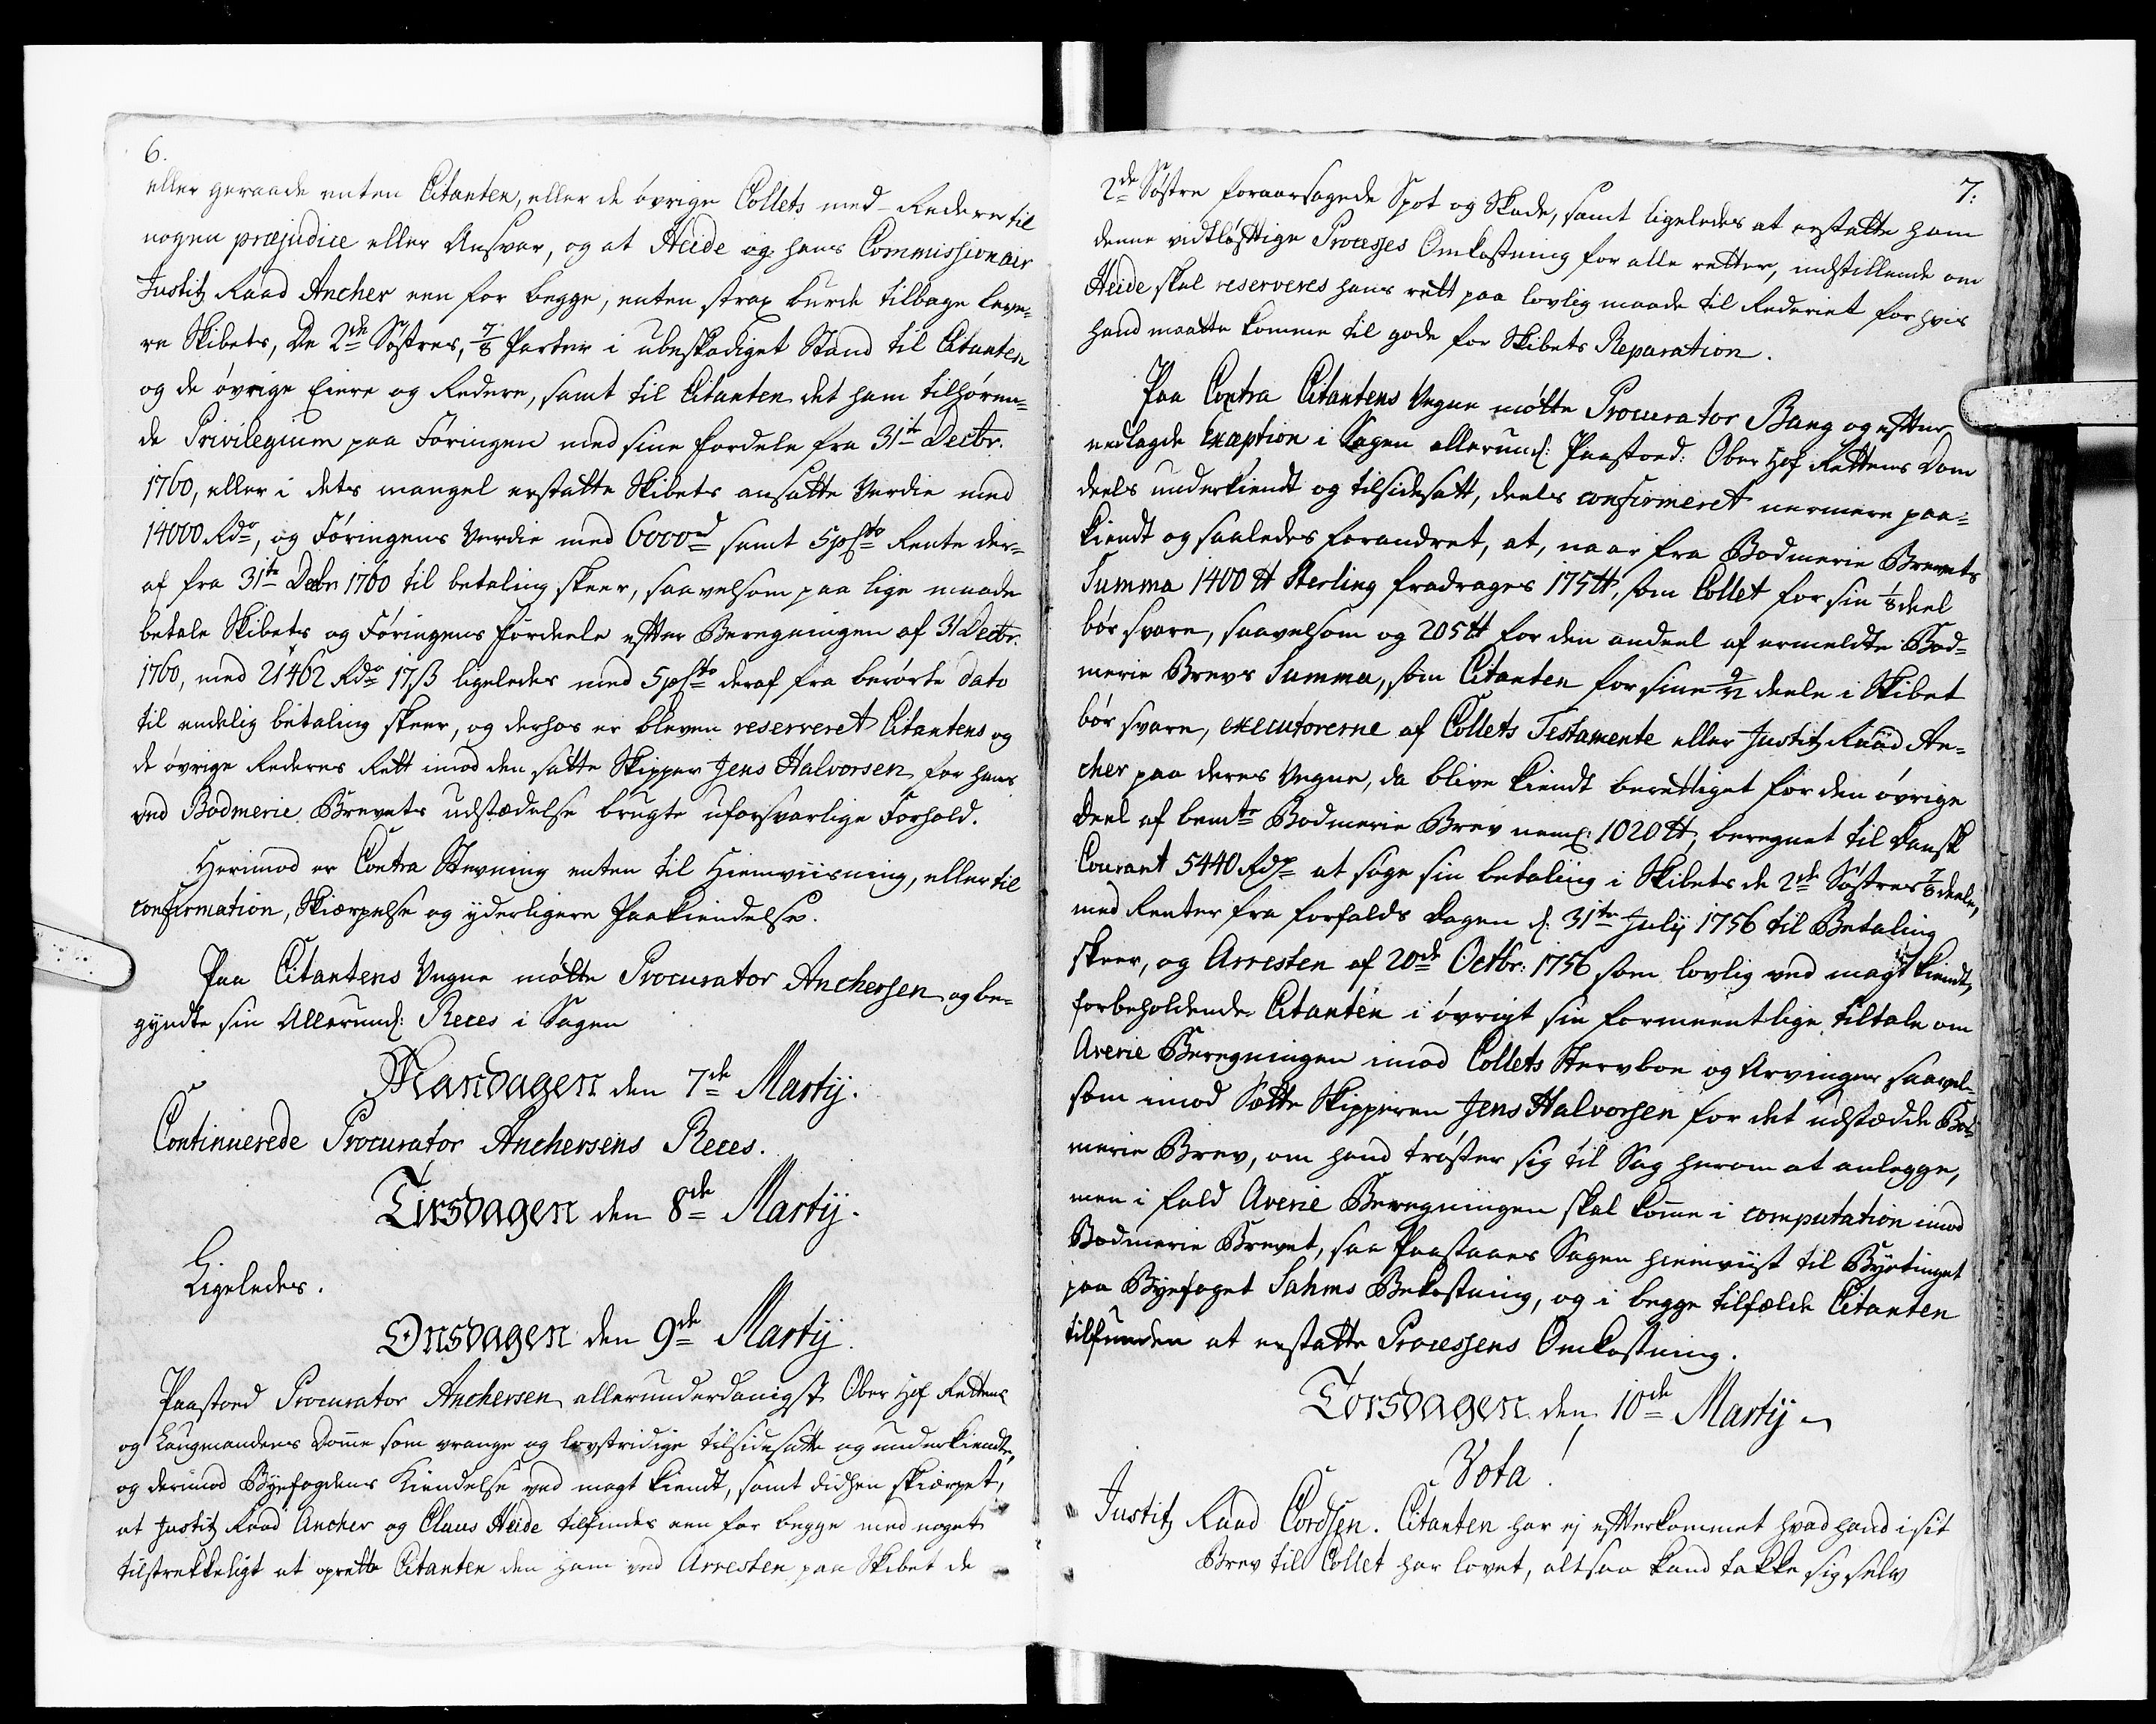 6.
eller geraade enten Citanten, eller de øvrige Collets med-Redere til
nogen præjudice eller Ansvar, og at Heide og hans Commissionair
Justitz Raad Ancher een for begge, enten strax burde tilbage leve-
re Skibets, De 2de Søstres, 7/8 Parter i ubeskadiget Stand til Citanten
og de øvrige Eiere og Redere, samt til Citanten det ham tilhøren-
de Privilegium paa Føringen med sine fordele fra 31te Decbr.
1760, eller i dets mangel erstatte Skibets ansatte Verdie med
14000 Rdr, og Føringens Verdie med 6000d samt 5 pCto Rente der-
af fra 31te Decbr 1760 til betaling skeer, saavelsom paa lige maade
betale Skibets og Føringens fordeele efter Beregningen af 31 Decbr.
1760, med 21462 Rdr 17 ß ligeledes med 5 pCto deraf fra berørte dato
til endelig betaling skeer, og derhos er bleven reserveret Citantens og
de øvrige Rederes Rett imod den satte Skipper Jens Halvorsen for hans
ved Bodmerie Brevets udstædelse brugte uforsvarlige Forhold.
Herimod er Contra Stevning enten til Hiemviisning, eller til
confirmation, Skiærpelse og yderligere Paakiendelse.
Paa Citantens Vegne mødte Procurator Anchersen og be-
gyndte sin Allerund: Reces i Sagen
Mandagen den 7de Martij.
Continuerede Procurator Anchersens Reces.
Tirsdagen den 8de Martij.
Ligeledes.
Onsdagen den 9de Martij.
Paastoed Procurator Anchersen allerunderdanigst Ober Hof Rettens
og Laugmandens Domme som vrange og lovstridige tilsidesatte og underkiendte,
og derimod Byefogdens Kiendelse ved magt kiendt, samt didhen skiærpet,
at Justitz Raad Ancher og Claus Heide tilfindes een for begge med noget
tilstrekkeligt at oprette Citanten den ham ved Arresten paa Skibet de
7:
2de Søstre foraarsagede Spot og Skade, samt ligeledes at erstatte ham
denne vidtløftige Processes Omkostning for alle retter, indstillende om
Heide skal reserveres hans rett paa lovlig maade til Rederiet for hvis
hand maatte komme til gode for Skibets Reparation.
Paa Contra Citantens Vegne mødte Procurator Bang og efter
nedlagde exception i Sagen allerund: Paastoed: Ober Hof Rettens Dom
deels underkiendt og tilsidesatt, deels confirmeret nermere paa-
kiendt og saaledes forandret, at, naar fra Bodmerie Brevets
Summa 1400 ₶ Sterling fradrages 175 ₶, som Collet for sin 1/8 deel
bør svare, saavelsom og 205 ₶ for den andeel af ermeldte Bod-
merie Brevs Summa, som Citanten for sine deele i Skibet
bør svare, executorerne af Collets Testamente eller Justitz Raad An-
cher paa deres Vegne, da blive kiendt berettiget for den øvrige
Deel af bemte Bodmerie Brev neml: 1020 ₶, beregnet til Dansk
Courant 5440 Rdr at søge sin betaling i Skibets de 2de Søstres 7/8 deele,
med Renter fra forfalds Dagen d: 31te Julij 1756 til Betaling
skeer, og Arresten af 20de Octbr: 1756 som lovlig ved magt kiendt,
forbeholdende Citanten i øvrigt sin formeentlige tiltale om
Averie Beregningen imod Collets Stervboe og Arvinger saavel-
som imod Satte Skipperen Jens Halvorsen for det udstædde Bod-
merie Brev, om hand trøster sig til Sag herom at anlegge,
men i fald Averie Beregningen skal komme i computation imod
Bodmerie Brevet, saa Paastaaes Sagen hiemviist til Byetinget
paa Byefoget Sahms Bekostning, og i begge tilfælde Citanten
tilfunden at erstatte Processens Omkostning.
Torsdagen den 10de Martij
Vota!
Justitz Raad Cordsen. Citanten har ej efterkommet hvad hand i sit
Brev til Collet har lovet, altsaa kand takke sig selv